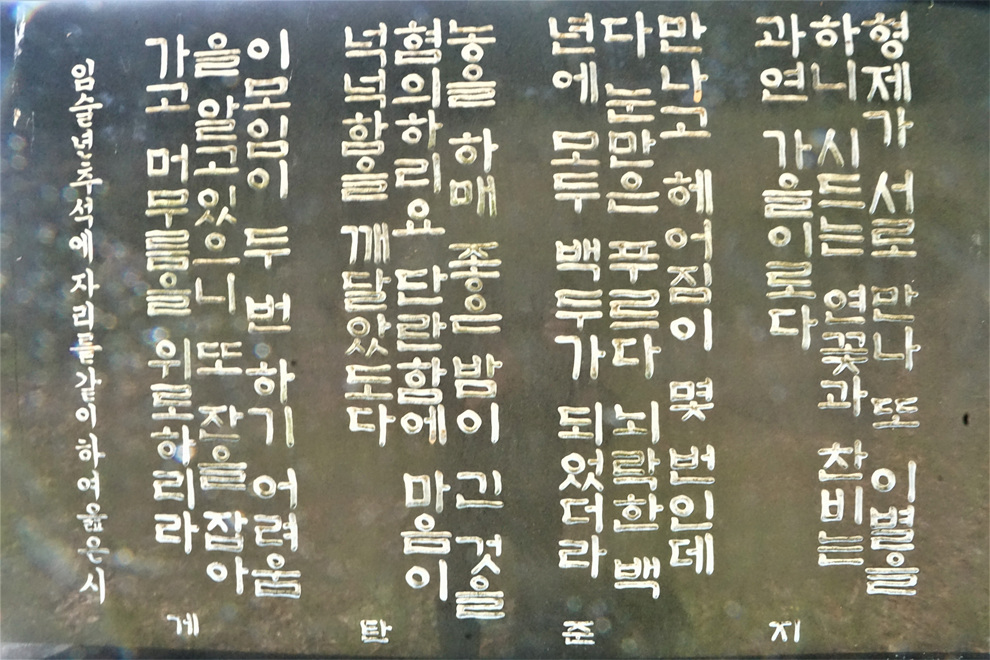 형제가 서로 만나 또 이별을
하니 시드는 연꽃과 찬비는
과연 가을이로다
지
만나고 헤어짐이 몇 번인데
다 눈만은 푸르다 뇌락한 백
년에 모두 백두가 되었더라
준
농을 하매 좋은 밤이 긴 것을
혐의하리요 단란함에 마음이
넉넉함을 깨달았도다
탄
이 모임이 두 번 하기 어려움
을 알고 있으니 또 잔을 잡아
가고 머무름을 위로하리라
게
자리를 같이하여 읊은 시